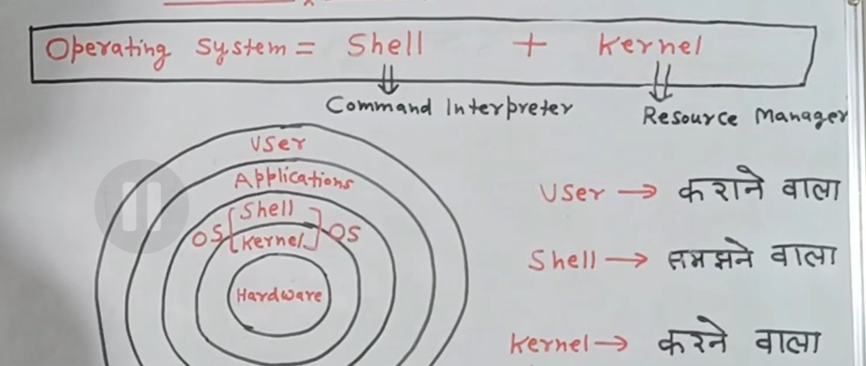 Operating System = Shell + Kernel
Command Interpreter
Resource Manager
User
Applications
Shell
OS [Kernel] OS
Hardware
User → कराने वाला
Shell → समझने वाला
Kernel → करने वाला